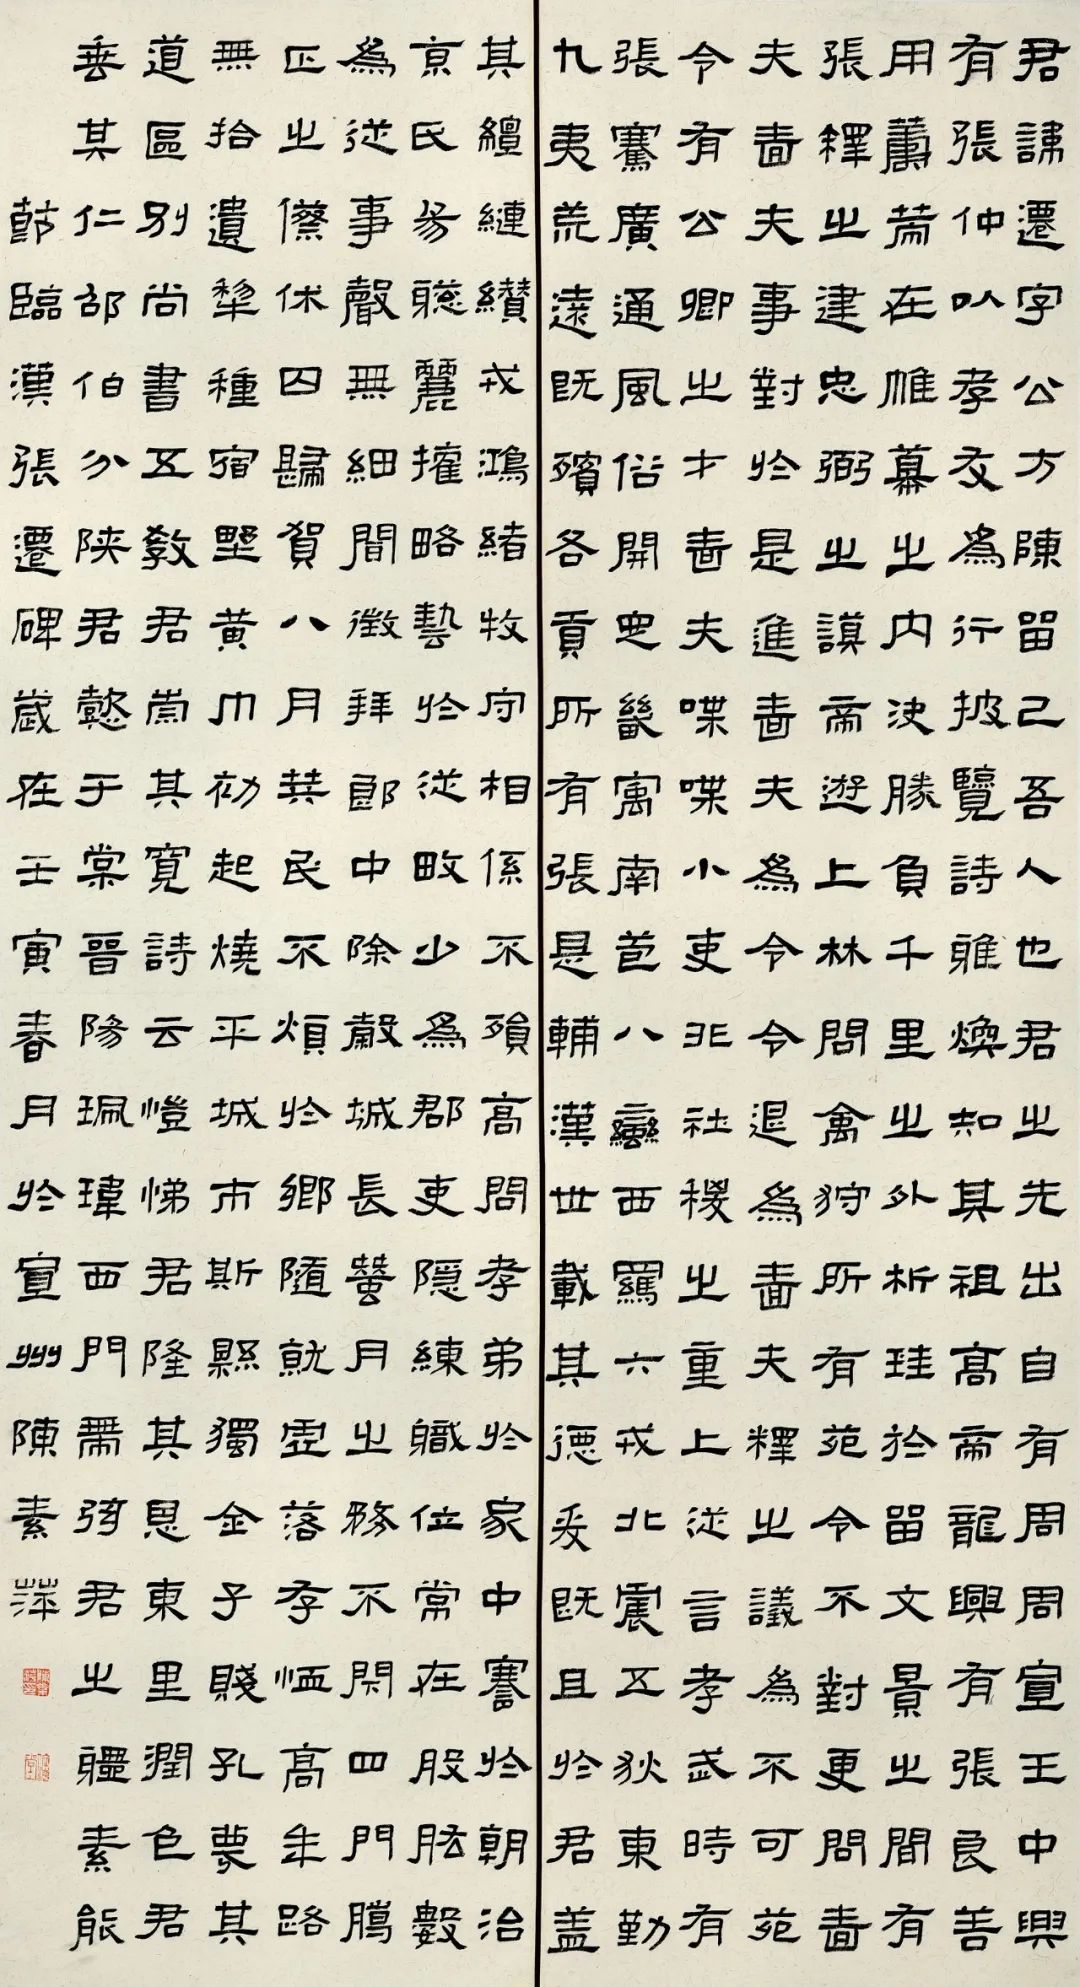 君諱遷字公方陳留己吾人也君之先出自有周周宣王中興
有張仲以孝友為行披覽詩雅煥知其祖高帝龍興有張良善
用籌策在帷幕之內決勝負千里之外析珪於留文景之間有
張釋之建忠弼之謨帝遊上林問禽狩所有苑令不對更問嗇
夫嗇夫事對於是進嗇夫為令令退為嗇夫釋之議為不可苑
令有公卿之才嗇夫喋喋小吏非社稷之重上從言孝武時有
張騫廣通風俗開定畿寓南苞八蠻西羈六戎北震五狄東勤
九夷荒遠既殯各貢所有張是輔漢世載其德爰既且於君蓋
其繵縺纘戎鴻緒牧守相係不殞高問孝弟於家中謇於朝治
京氏易聰麗權略藝於從畋少為郡吏隱練職位常在股肱數
為從事聲無細聞徵拜郎中除穀城長蠶月之務不閉四門臘
正之僚休囚歸賀八月笇民不煩於鄉隨就虛落存恤高年路
無拾遺犁種宿野黃巾初起燒平城市斯縣獨全子賤孔蔑其
道區別尚書五教君崇其寬詩云愷悌君隆其恩東里潤色君
垂其仁邵伯分陝君懿于棠晉陽珮瑋西門帶弦君之體素能
節臨漢張遷碑歲在壬寅春月於宣州陳素萍